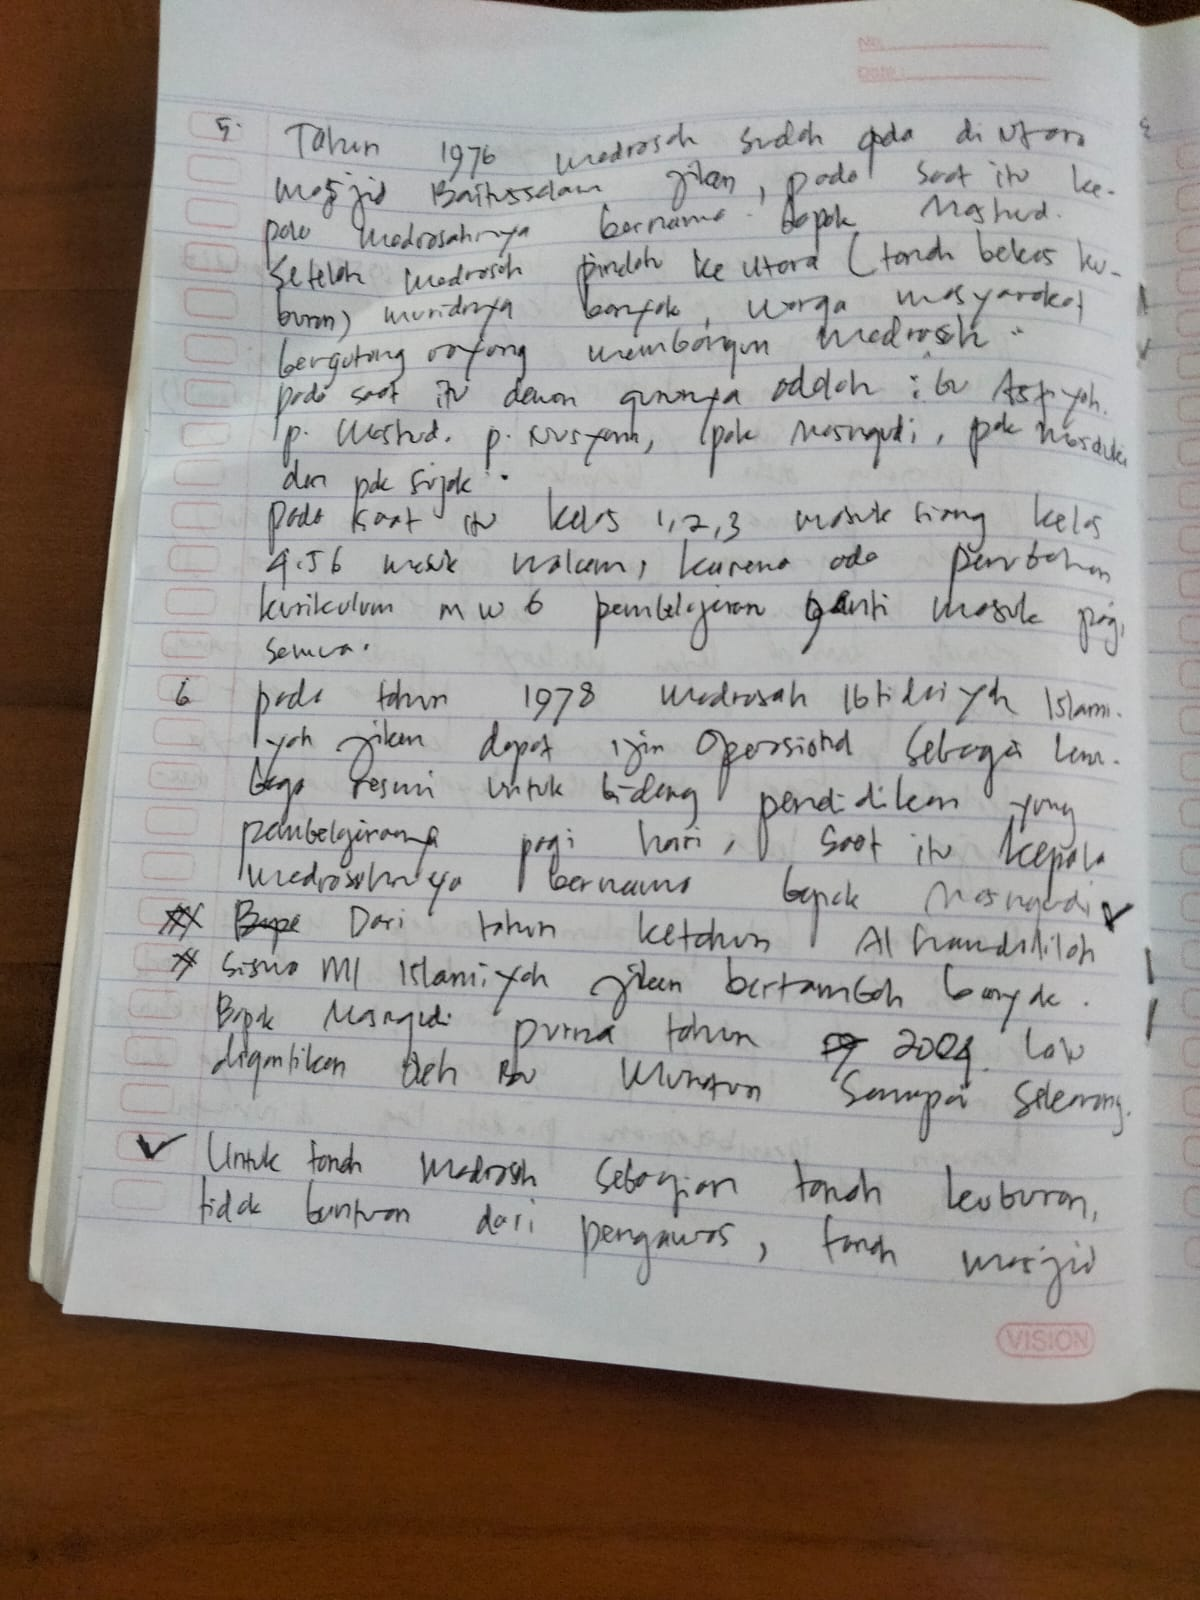 No.
Date:
5. Tahun 1976 madrasah sudah ada di utara
masjid Baitussalam jiken, pada saat itu ke-
pala madrasahnya bernama bapak Mashud.
Setelah madrasah pindah ke utara (tanah bekas ku-
buran) muridnya banyak, warga masyarakat
bergotong royong membangun madrasah
pada saat itu dewan gurunya adalah : bu Asfiyah.
p. Mashud. p. Nusyam, pak Masngudi, pak Masduki
dan pak Sujak.
pada saat itu kelas 1,2,3 masuk siang kelas
4.56 masuk malam, karena ada perubahan
kurikulum m w b pembelajaran ganti masuk pagi
semua.
6 pada tahun 1978 madrasah Ibtidaiyah Islami-
yah jiken dapat ijin Operasional sebagai lem-
baga resmi untuk bidang pendidikan yang
pembelajarannya pagi hari, saat itu kepala
madrasahnya bernama bapak Masngudi
Dari tahun ketahun Alhamdulilah
siswa MI Islamiyah jiken bertambah banyak.
Bapak Masngudi purna tahun 2004 lalu
digantikan oleh Bu sampai sekarang.
Untuk tanah madrasah sebagian tanah kuburan,
tidak bantuan dari pengawas, tanah masjid
VISION